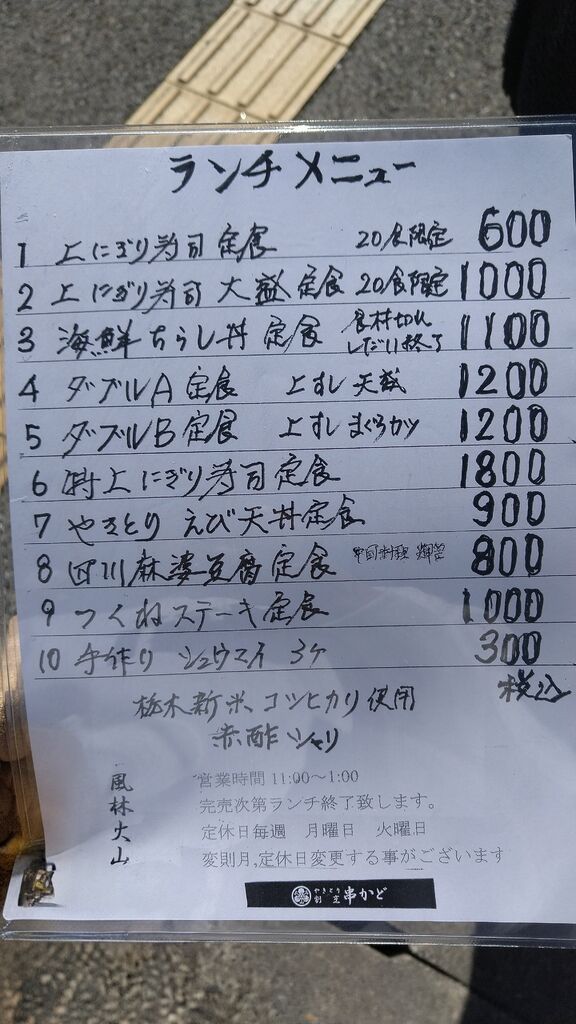 ランチメニュー
1 上にぎり寿司定食 20食限定 600
2 上にぎり寿司 大盛定食 20食限定 1000
3 海鮮ちらし丼 定食 食材切れしだい終了 1100
4 ダブルA定食 上すし 天盛 1200
5 ダブルB定食 上すし まぐろカツ 1200
6 特上にぎり寿司定食 1800
7 やきとり えび天丼定食 900
8 四川麻婆豆腐定食 中国料理 800
9 つくねステーキ定食 1000
10 手作り シュウマイ 3ケ 300
税込
栃木新米、コシヒカリ使用
赤酢シャリ
風林火山
営業時間 11:00〜1:00
完売次第ランチ終了致します。
定休日毎週 月曜日 火曜日
変則月,定休日変更する事がございます
やきとり 割烹 串かど